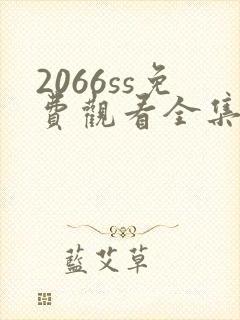 2066ss免
費觀看全集
藍艾草